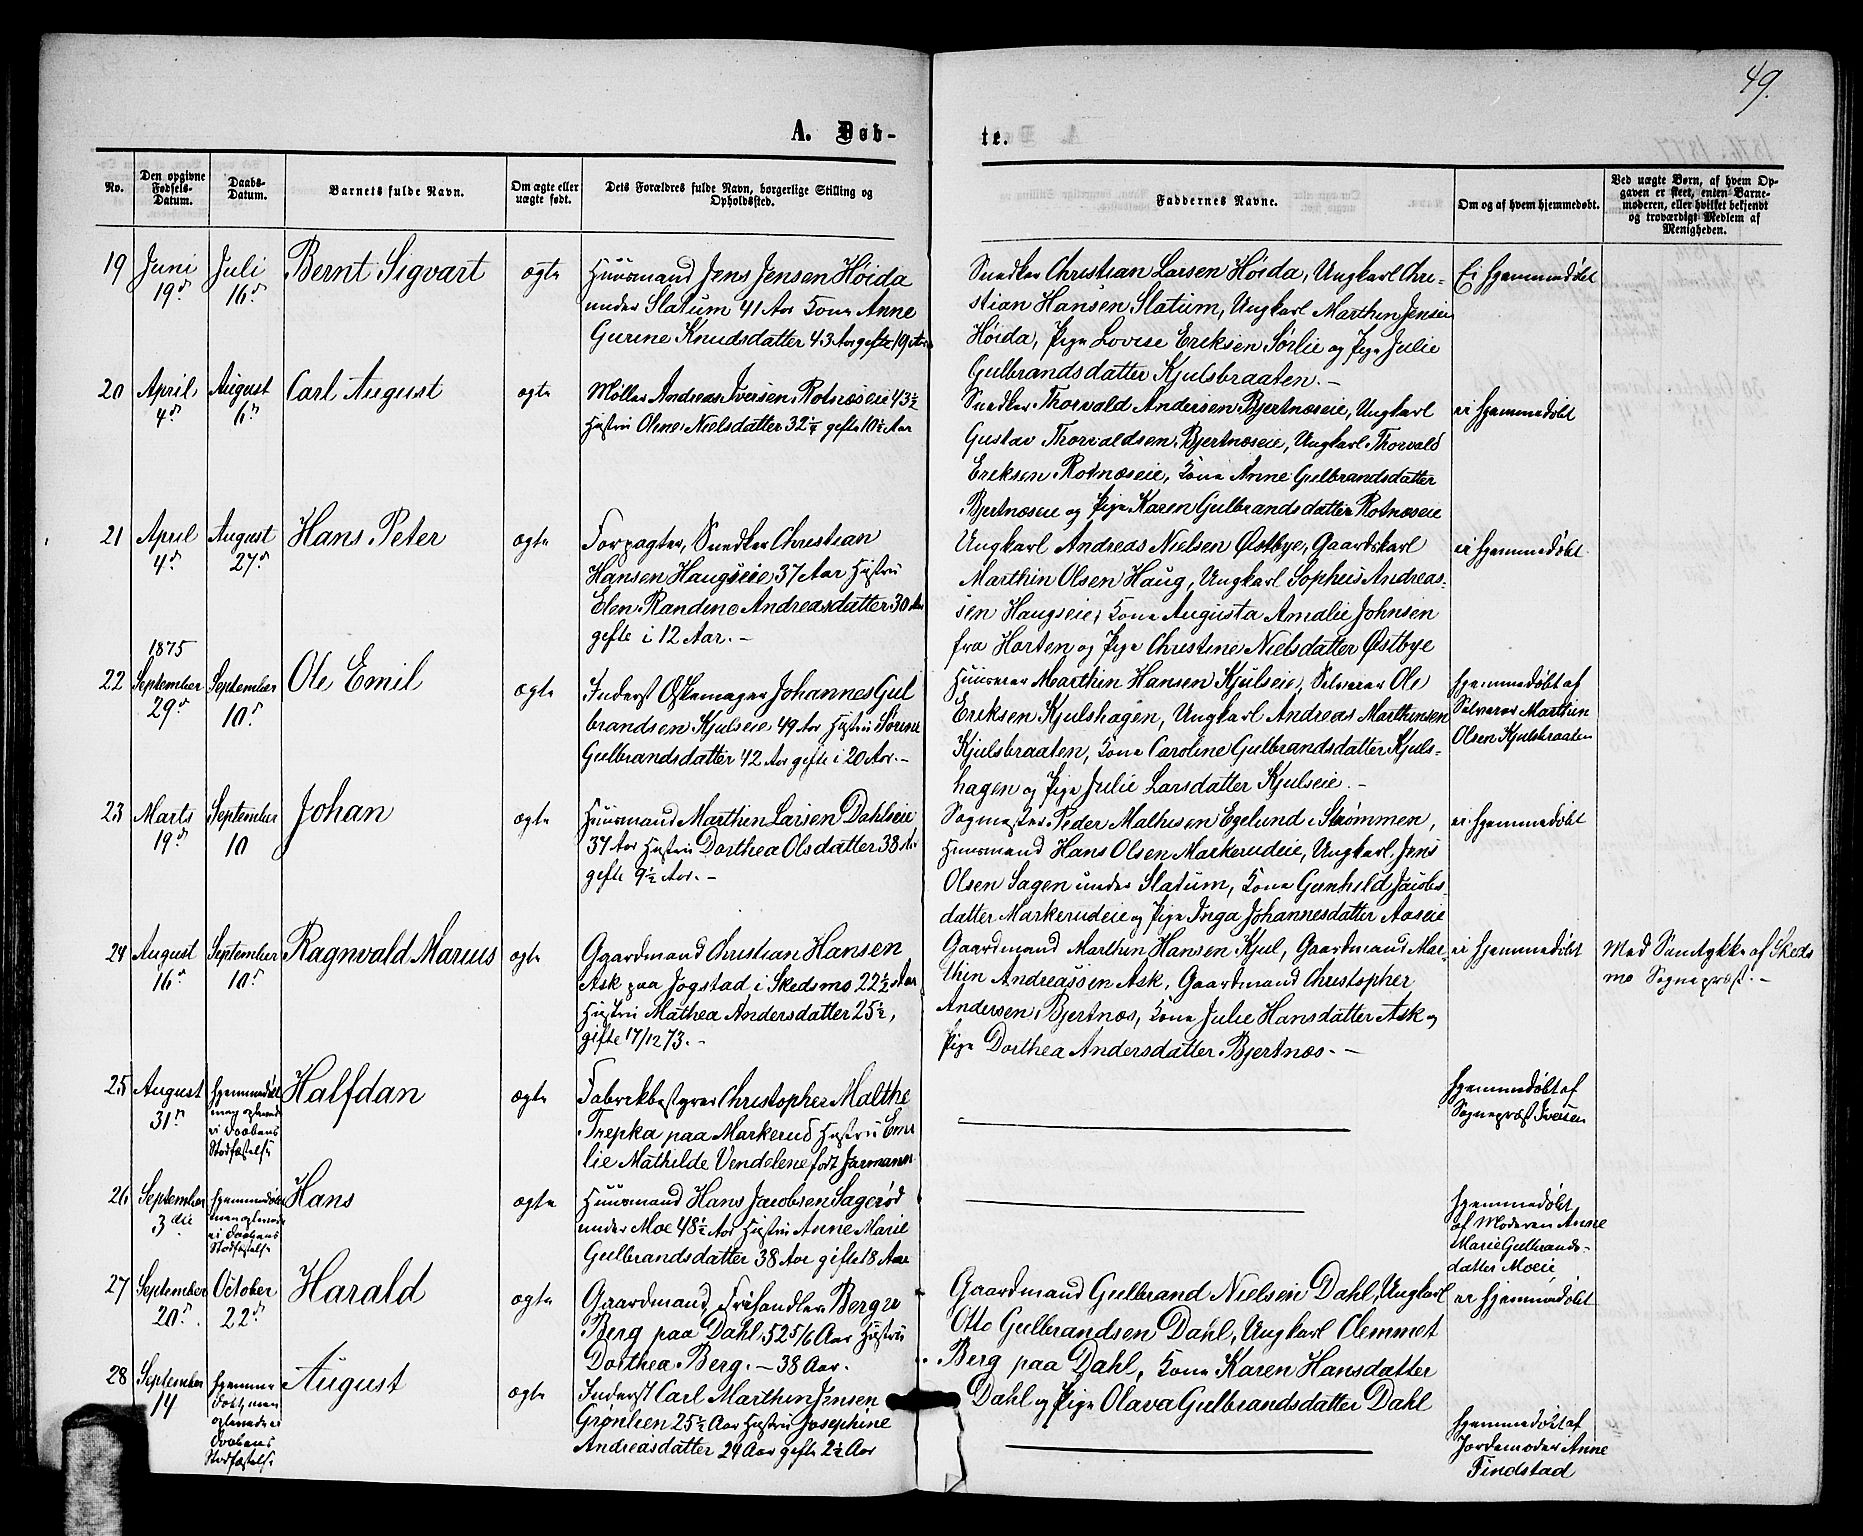 49.
A. Døb-
te.
No.
Den opgivne
Fødsels-
Datum.
Daabs-
Datum.
Barnets fulde Navn.
Om ægte eller
uægte født.
Dets Forældres fulde Navn, borgerlige Stilling og
Opholdssted.
Faddernes Navne.
Om og af hvem hjemmedøbt.
Ved uægte Børn, af hvem Op-
gaven er skeet, enten Barne-
moderen, eller hvilket bekjendt
og troværdigt Medlem af
Menigheden.
19
Juni
19de
Juli
16de
Bernt Sigvart
ægte
Huusmand Jens Jensen Höida
under Slatum 41 Aar Kone Anne
Gurine Knudsdatter 43 Aar gifte 19 Aar
Snedker Christian Larsen Höida, Ungkarl Chri-
stian Hansen Slatum, Ungkarl Marthin Jensen
Höida, Pige Lovise Eriksen Sørlie og Pige Julie
Gulbrandsdatter Kjulsbraaten. -
Ei hjemmedøbt
20
April
4de
August
6te
Carl August
ægte
Møller Andreas Iversen, Rotnæseie 43½
Hustru Oline Nielsdatter 32 gifte 10½ Aar
Snedker Thorvald Andersen Bjertnæseie, Ungkarl
Gustav Thorvaldsen, Bjertnæseie, Ungkarl Thorvald
Eriksen Rotnæseie, Kone Anne Gulbrandsdatter
Bjertnæseie og Pige Karen Gulbrandsdatter Rotnæseie
ei hjemmedøbt
21
April
4de
August
27de
Hans Peter
ægte
Forpagter, Snedker Christian
Hansen Haugseie 37 Aar Hustru
Elen Randine Andreasdatter 30 Aar
gifte i 12 Aar. -
Ungkarl Andreas Nielsen Østbye, Gaardskarl
Marthin Olsen Haug, Ungkarl Sophus Andreas-
sen Haugseie, Kone Augusta Amalie Johnsen
fra Horten og Pige Christine Nielsdatter Østbye
ei hjemmedøbt
22
1875
September
29de
September
10de
Ole Emil
ægte
Inderst Johannes Gul
brandsen Kjulseie 49 Aar Hustru Sørine
Gulbrandsdatter 42 Aar gifte i 20 Aar. -
Marthin Hansen Kjulseie, Selveier Ole
Eriksen Kjulshagen, Ungkarl Andreas Marthinsen
Kjulsbraaten, Kone Caroline Gulbrandsdatter Kjuls-
hagen og Pige Julie Larsdatter Kjulseie. -
hjemmedøbt af
Selveier Marthin
Olsen Kjulsbraaten
23
Marts
19de
September
10
Johan
ægte
Huusmand Marthin Larsen Dahlseie
37 Aar Hustru Dorthea Olsdatter 38 Aar
gifte 9½ Aar. -
Sagmester Peder Mathisen Egelund i Strømmen,
Huusmand Hans Olsen Markerudeie, Ungkarl Jens
Olsen Sagen under Slatum, Kone Gunhild Jacobs-
datter Markerudeie og Pige Inga Johannesdatter Aaseie
ei hjemmedøbt
24
August
16de
September
10de
Ragnvald Marius
ægte
Gaardmand Christian Hansen
Ask paa Jogstad i Skedsmo 22½ Aar
Hustru Mathea Andersdatter 25½,
gifte 17/12 73. -
Gaardmand Marthin Hansen Kjul, Gaardmand Mar-
thin Andreassen Ask, Gaardmand Christopher
Andersen, Bjertnæs, Kone Julie Hansdatter Ask og
Pige Dorthea Andersdatter Bjertnæs. -
ei hjemmedøbt
Med Samtykke af Skeds
mo Sognepræst. -
25
August
31te
hjemmedøbt
men opleved
ei Daabens
Stadfæstelse
Halfdan
ægte
Fabrikbestyrer Christopher Malthe
Trepka paa Markerud Hustru Emi
lie Mathilde Vendelene født Jarmann
hjemmedøbt af
Sognepræst Iversen
26
September
3die
hjemmedøbt
men opleved
ei Daabens
Stadfæstelse
Hans
ægte
Huusmand Hans Jacobsen Sagerød
under Moe 48½ Aar Hustru Anne Marie
Gulbrandsdatter 38 Aar gifte 18 Aar
hjemmedøbt
af Moderen Anne
Marie Gulbrands-
datter Moeie
27
September
20de
October
22de
Harald
ægte
Gaardmand, Berger
Berg paa Dahl 52 5/6 Aar Hustru
Dorthea Berg. - 38 Aar.
Gaardmand Gulbrand Nielsen Dahl, Ungkarl
Otto Gulbrandsen Dahl, Ungkarl Clemmet
Berg paa Dahl, Kone Karen Hansdatter
Dahl og Pige Olava Gulbrandsdatter Dahl
ei hjemmedøbt
28
September
14
hjemme
døbt, men
oplevede ei
Daabens
Stadfæstelse
August
ægte
Inderst Carl Marthin Jensen
Grønlien 25½ Aar Hustru Josephine
Andreasdatter 24 Aar gifte 2½ Aar
hjemmedøbt af
Jordemoder Anne
Findstad